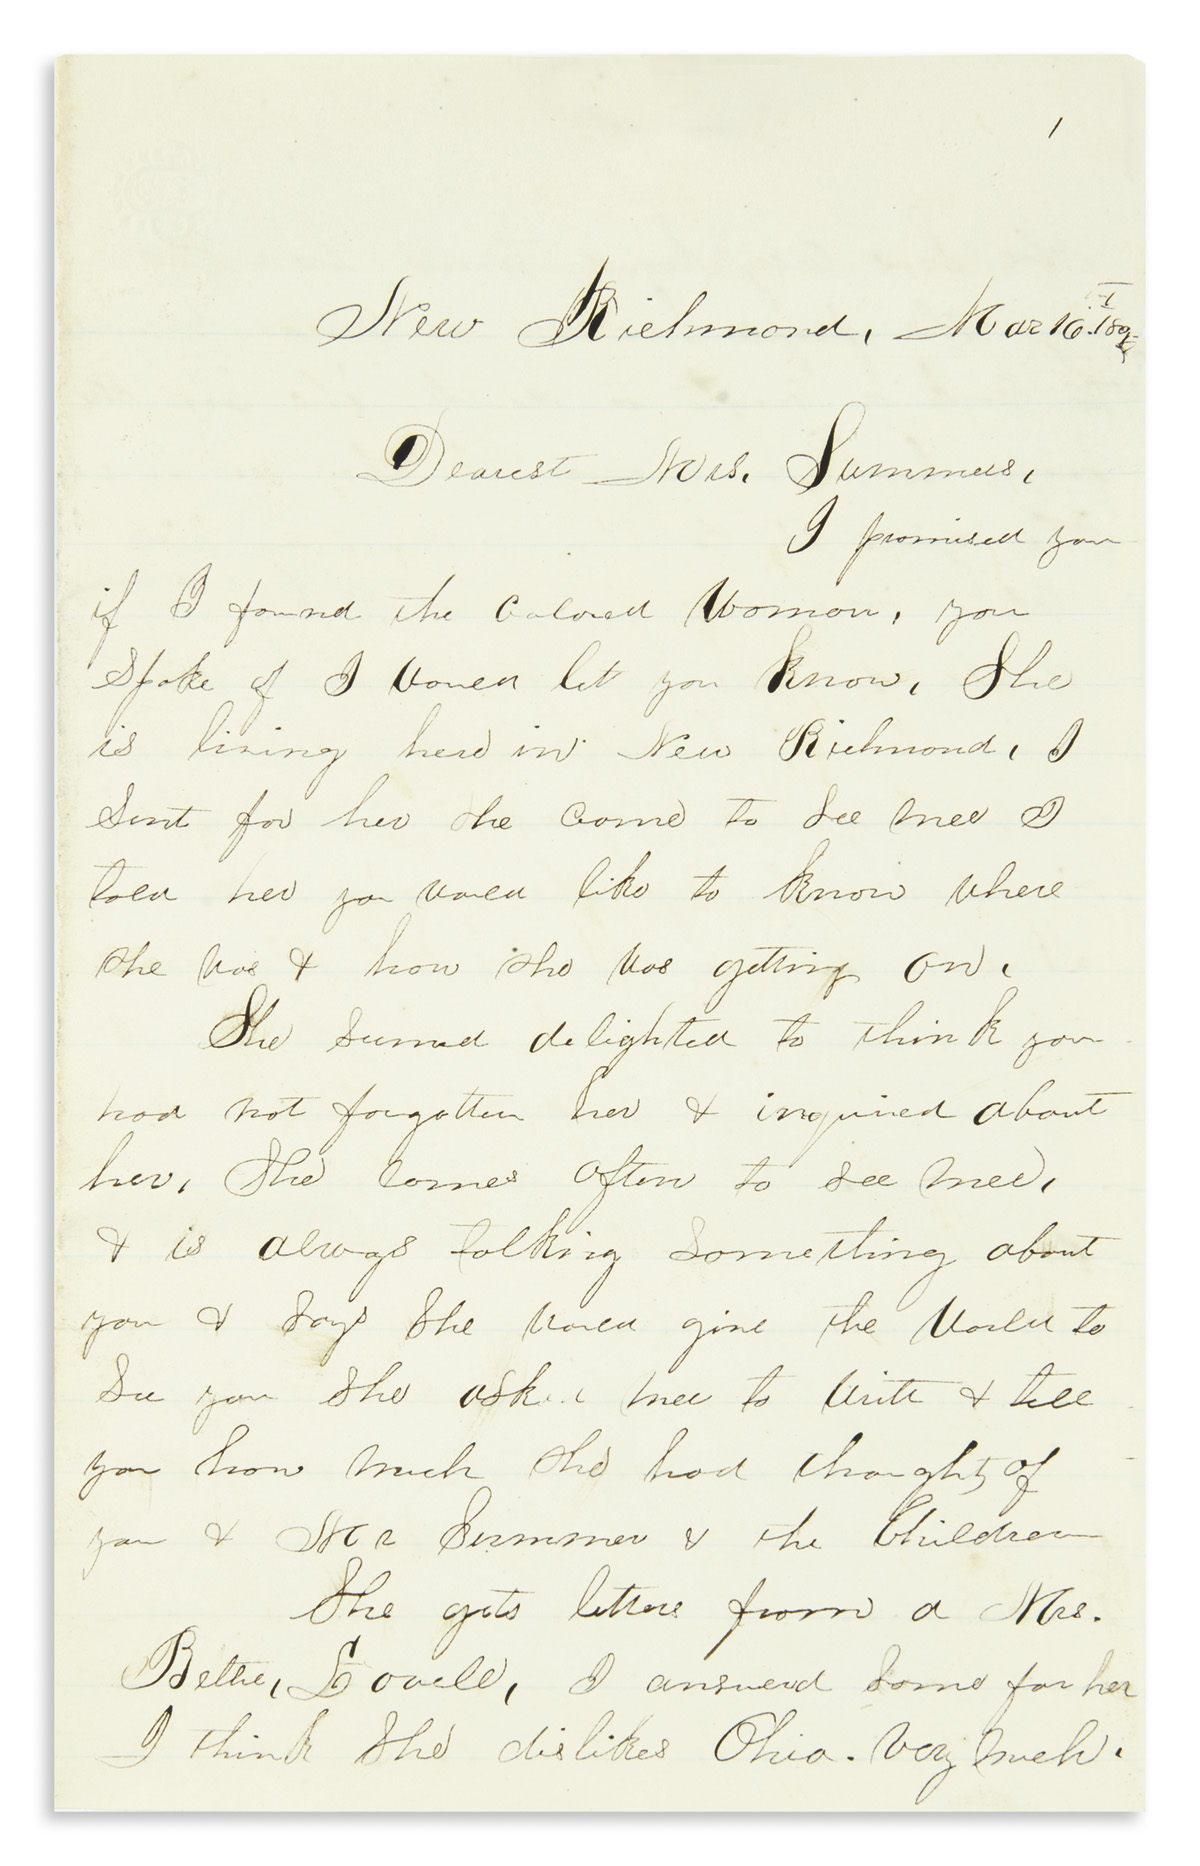 1
New Richmond, Mar 16.
Dearest Mrs. Summers,
I promised you
if I found the colored Woman, you
Spoke of I Would let you Know, She
is living here in New Richmond, I
Sent for her she come to See mee I
told her you would like to know where
she was & how she was getting on,
She seemed delighted to think you
had not forgotten her & inquired about
her, She comes often to see mee,
& is always talking something about
you & Says She would give the World to
See you She asked mee to Write & tell
you how much She had thought of
you & Mr Summer & the Children
She gets letters from a Mrs.
Bettie, Lovell, I answerd Some for her
I think She dislikes Ohio. Very much.